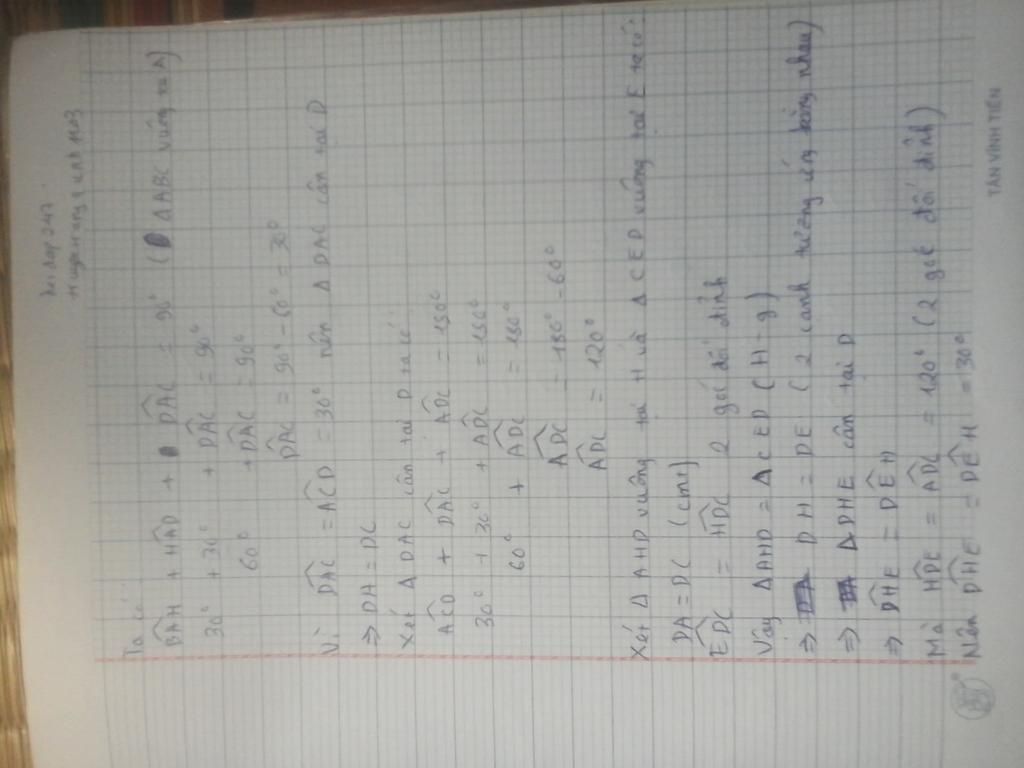 hoidap247
Ta có
BÂH + HÂD + DÂC = 90° (ΔABC vuông tại A)
30° + 30° + DÂC = 90°
60° + DÂC = 90°
DÂC = 90° - 60° = 30°
Vì DÂC = AĈD = 30° nên Δ DAC cân tại D
⇒ DA = DC
Xét Δ DAC cân tại D ta có:
AĈD + DÂC + AD̂C = 180°
30° + 30° + AD̂C = 180°
60° + AD̂C = 180°
AD̂C = 180° - 60°
AD̂C = 120°
Xét Δ AHD vuông tại H và Δ CED vuông tại E ta có:
DA = DC (cmt)
ED̂C = HD̂C 2 góc đối đỉnh
Vậy ΔAHD = ΔCED (H-g)
⇒ DH = DE (2 cạnh tương ứng bằng nhau)
⇒ Δ DHE cân tại D
⇒ DĤE = DÊH
Mà HD̂E = AD̂C = 120° (2 góc đối đỉnh)
Nên DĤE = DÊH = 30°
TÂN VĨNH TIẾN